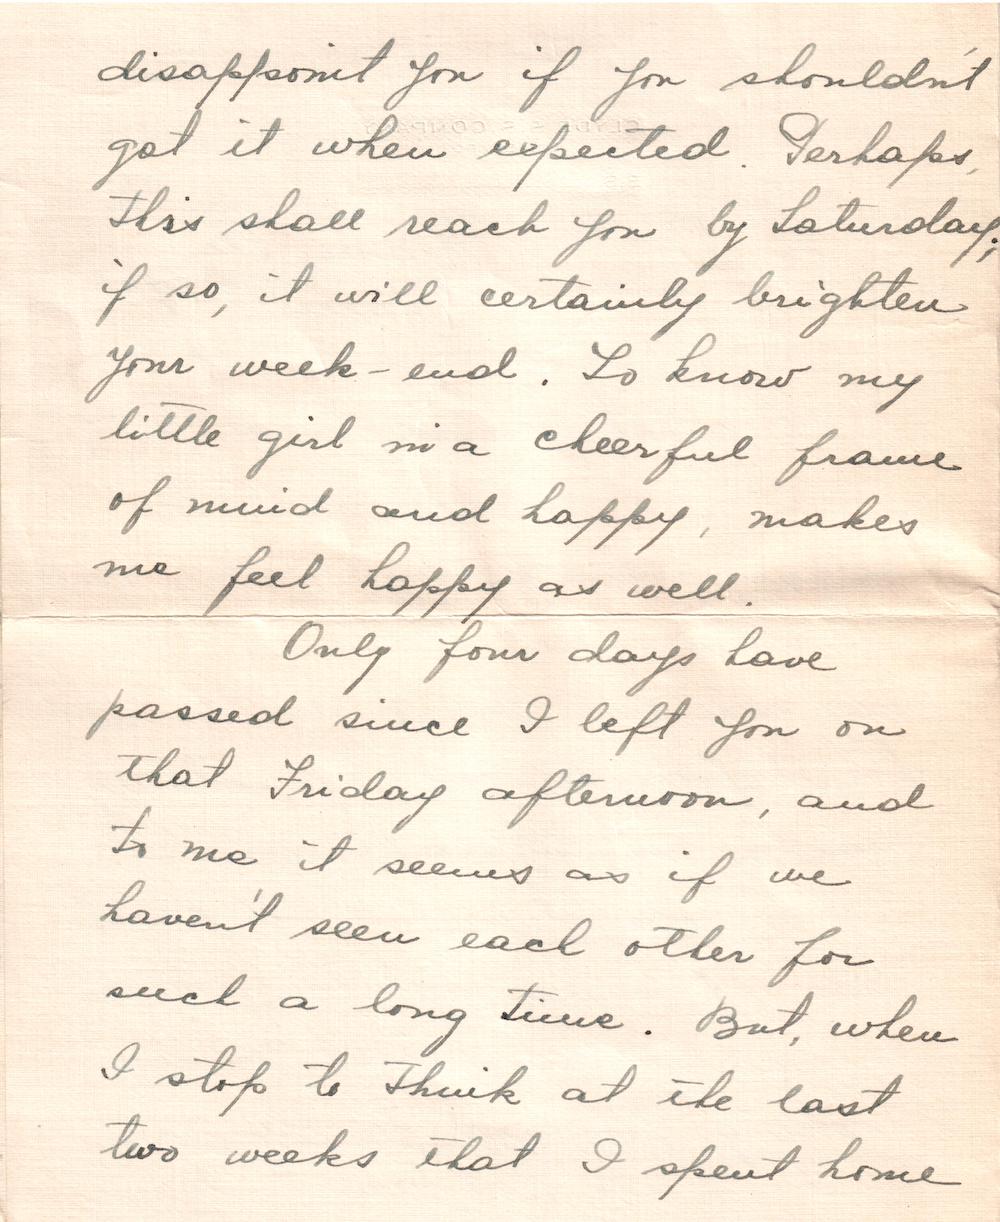 disappoint you if you shouldn't
got it when expected. Perhaps,
this shall reach you by Saturday;
if so, it will certainly brighten
your week-end. To know my
little girl in a cheerful frame
of mind and happy, makes
me feel happy as well.
Only four days have
passed since I left you on
that Friday afternoon, and
to me it seems as if we
haven't seen each other for
such a long time. But, when
I stop to think at the last
two weeks that I spent home